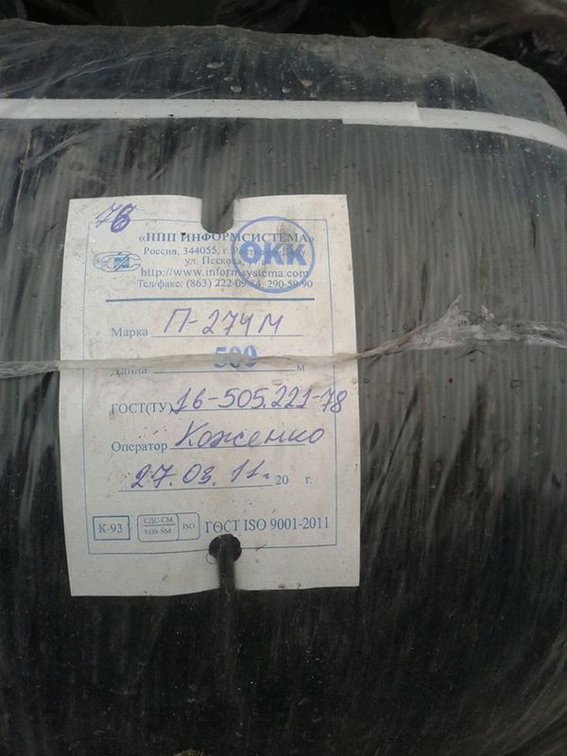 76
«НПП ИНФОРМСИСТЕМА»
Россия, 344055, г.
ул. Пескова,
http://www.informsystema.com
Тел/факс: (863) 222-09-84, 290-59-90
ОКК
Марка П-274М
Длина 500 м
ГОСТ(ТУ) 16-505.221-78
Оператор Коженко
27.03.11г. 20 г.
К-93 СДС-СМ SDS-SM ISO ГОСТ ISO 9001-2011